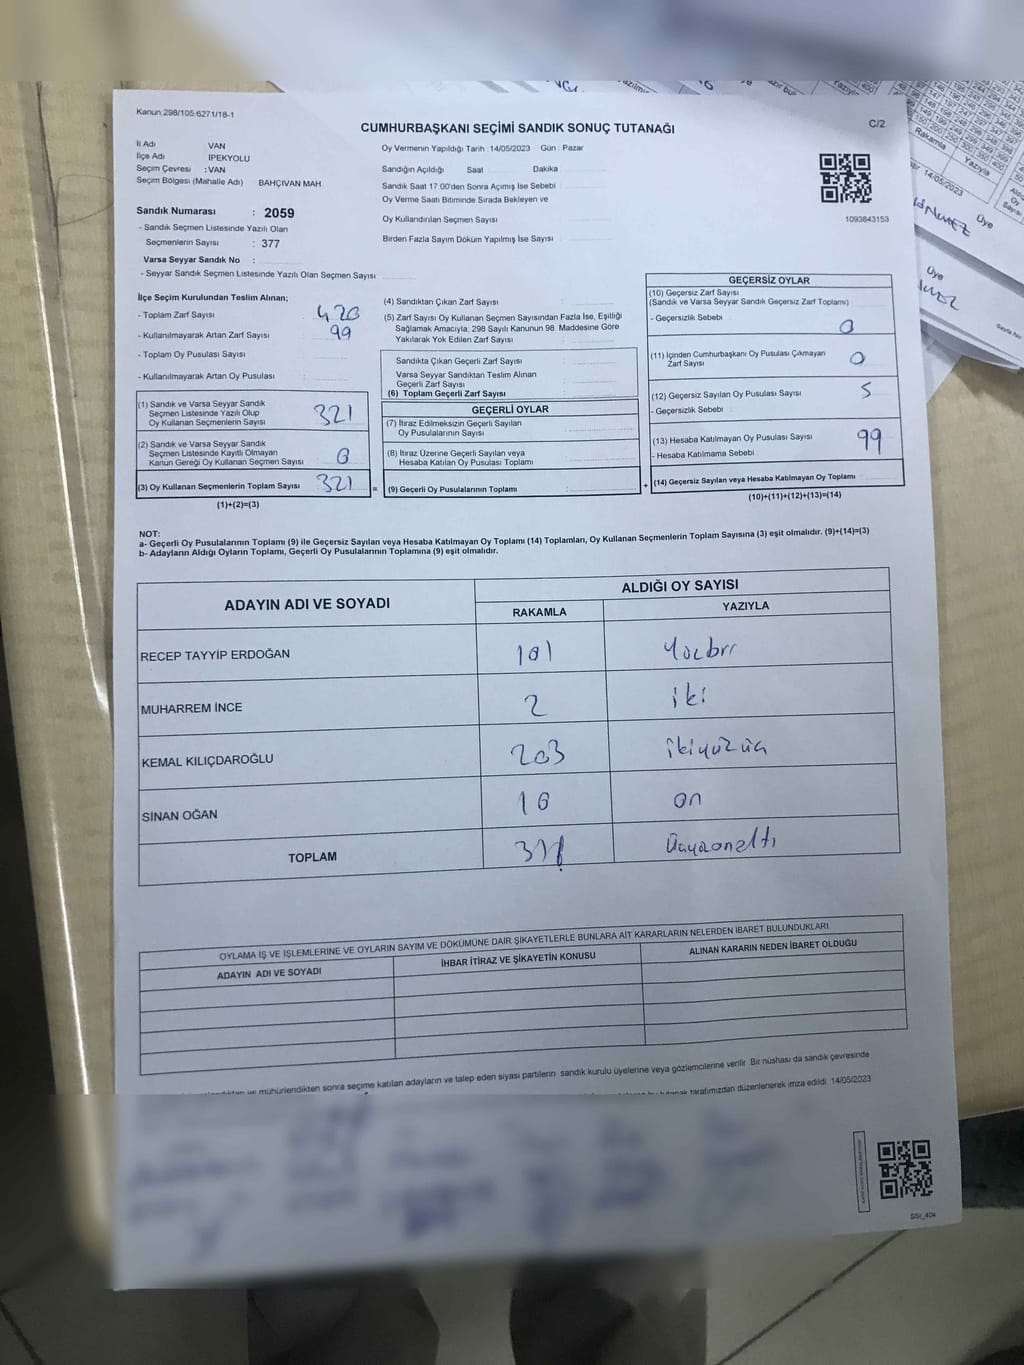 Kanun 298/105 6271/18-1
C/2
CUMHURBAŞKANI SEÇİMİ SANDIK SONUÇ TUTANAĞI
İl Adı VAN
İlçe Adı İPEKYOLU
Seçim Çevresi : VAN
Seçim Bölgesi (Mahalle Adı) BAHÇIVAN MAH
Sandık Numarası : 2059
- Sandık Seçmen Listesinde Yazılı Olan
Seçmenlerin Sayısı : 377
Varsa Seyyar Sandık No :
- Seyyar Sandık Seçmen Listesinde Yazılı Olan Seçmen Sayısı
Oy Vermenin Yapıldığı Tarih 14/05/2023 Gün : Pazar
Sandığın Açıldığı Saat Dakika
Sandık Saat 17:00'den Sonra Açımış İse Sebebi
Oy Verme Saati Bitiminde Sırada Bekleyen ve
Oy Kullandırılan Seçmen Sayısı
Birden Fazla Sayım Döküm Yapılmış İse Sayısı
1093843153
İlçe Seçim Kurulundan Teslim Alınan;
- Toplam Zarf Sayısı 420
- Kullanılmayarak Artan Zarf Sayısı 99
- Toplam Oy Pusulası Sayısı
- Kullanılmayarak Artan Oy Pusulası
(1) Sandık ve Varsa Seyyar Sandık
Seçmen Listesinde Yazılı Olup
Oy Kullanan Seçmenlerin Sayısı 321
(2) Sandık ve Varsa Seyyar Sandık
Seçmen Listesinde Kayıtlı Olmayan
Kanun Gereği Oy Kullanan Seçmen Sayısı 0
(3) Oy Kullanan Seçmenlerin Toplam Sayısı 321 =
(1)+(2)=(3)
(4) Sandıktan Çıkan Zarf Sayısı
(5) Zarf Sayısı Oy Kullanan Seçmen Sayısından Fazla İse, Eşitliği
Sağlamak Amacıyla, 298 Sayılı Kanunun 98. Maddesine Göre
Yakılarak Yok Edilen Zarf Sayısı
Sandıkta Çıkan Geçerli Zarf Sayısı
Varsa Seyyar Sandıktan Teslim Alınan
Geçerli Zarf Sayısı
(6) Toplam Geçerli Zarf Sayısı
GEÇERLİ OYLAR
(7) İtiraz Edilmeksizin Geçerli Sayılan
Oy Pusulalarının Sayısı
(8) İtiraz Üzerine Geçerli Sayılan veya
Hesaba Katılan Oy Pusulası Toplamı
(9) Geçerli Oy Pusulalarının Toplamı +
GEÇERSİZ OYLAR
(10) Geçersiz Zarf Sayısı
(Sandık ve Varsa Seyyar Sandık Geçersiz Zarf Toplamı)
- Geçersizlik Sebebi 0
(11) İçinden Cumhurbaşkanı Oy Pusulası Çıkmayan
Zarf Sayısı 0
(12) Geçersiz Sayılan Oy Pusulası Sayısı 5
- Geçersizlik Sebebi
(13) Hesaba Katılmayan Oy Pusulası Sayısı 99
- Hesaba Katılmama Sebebi
(14) Geçersiz Sayılan veya Hesaba Katılmayan Oy Toplamı
(10)+(11)+(12)+(13)=(14)
NOT:
a- Geçerli Oy Pusulalarının Toplamı (9) ile Geçersiz Sayılan veya Hesaba Katılmayan Oy Toplamı (14) Toplamları, Oy Kullanan Seçmenlerin Toplam Sayısına (3) eşit olmalıdır. (9)+(14)=(3)
b- Adayların Aldığı Oyların Toplamı, Geçerli Oy Pusulalarının Toplamına (9) eşit olmalıdır.
ADAYIN ADI VE SOYADI ALDIĞI OY SAYISI
RAKAMLA YAZIYLA
RECEP TAYYİP ERDOĞAN 101 Yüzbir
MUHARREM İNCE 2 iki
KEMAL KILIÇDAROĞLU 203 ikiyüzüç
SİNAN OĞAN 10 on
TOPLAM Üçyüzonaltı
OYLAMA İŞ VE İŞLEMLERİNE VE OYLARIN SAYIM VE DÖKÜMÜNE DAİR ŞİKAYETLERLE BUNLARA AİT KARARLARIN NELERDEN İBARET BULUNDUKLARI
ADAYIN ADI VE SOYADI İHBAR İTİRAZ VE ŞİKAYETİN KONUSU ALINAN KARARIN NEDEN İBARET OLDUĞU
ve mühürlendikten sonra seçime katılan adayların ve talep eden siyasi partilerin sandık kurulu üyelerine veya gözlemcilerine verilir Bir nüshası da sandık çevresinde
tutanak tarafımızdan düzenlenerek imza edildi 14/05/2023
SSI_404
Rakamla Yazıyla
14/05/2023
Üye
Üye